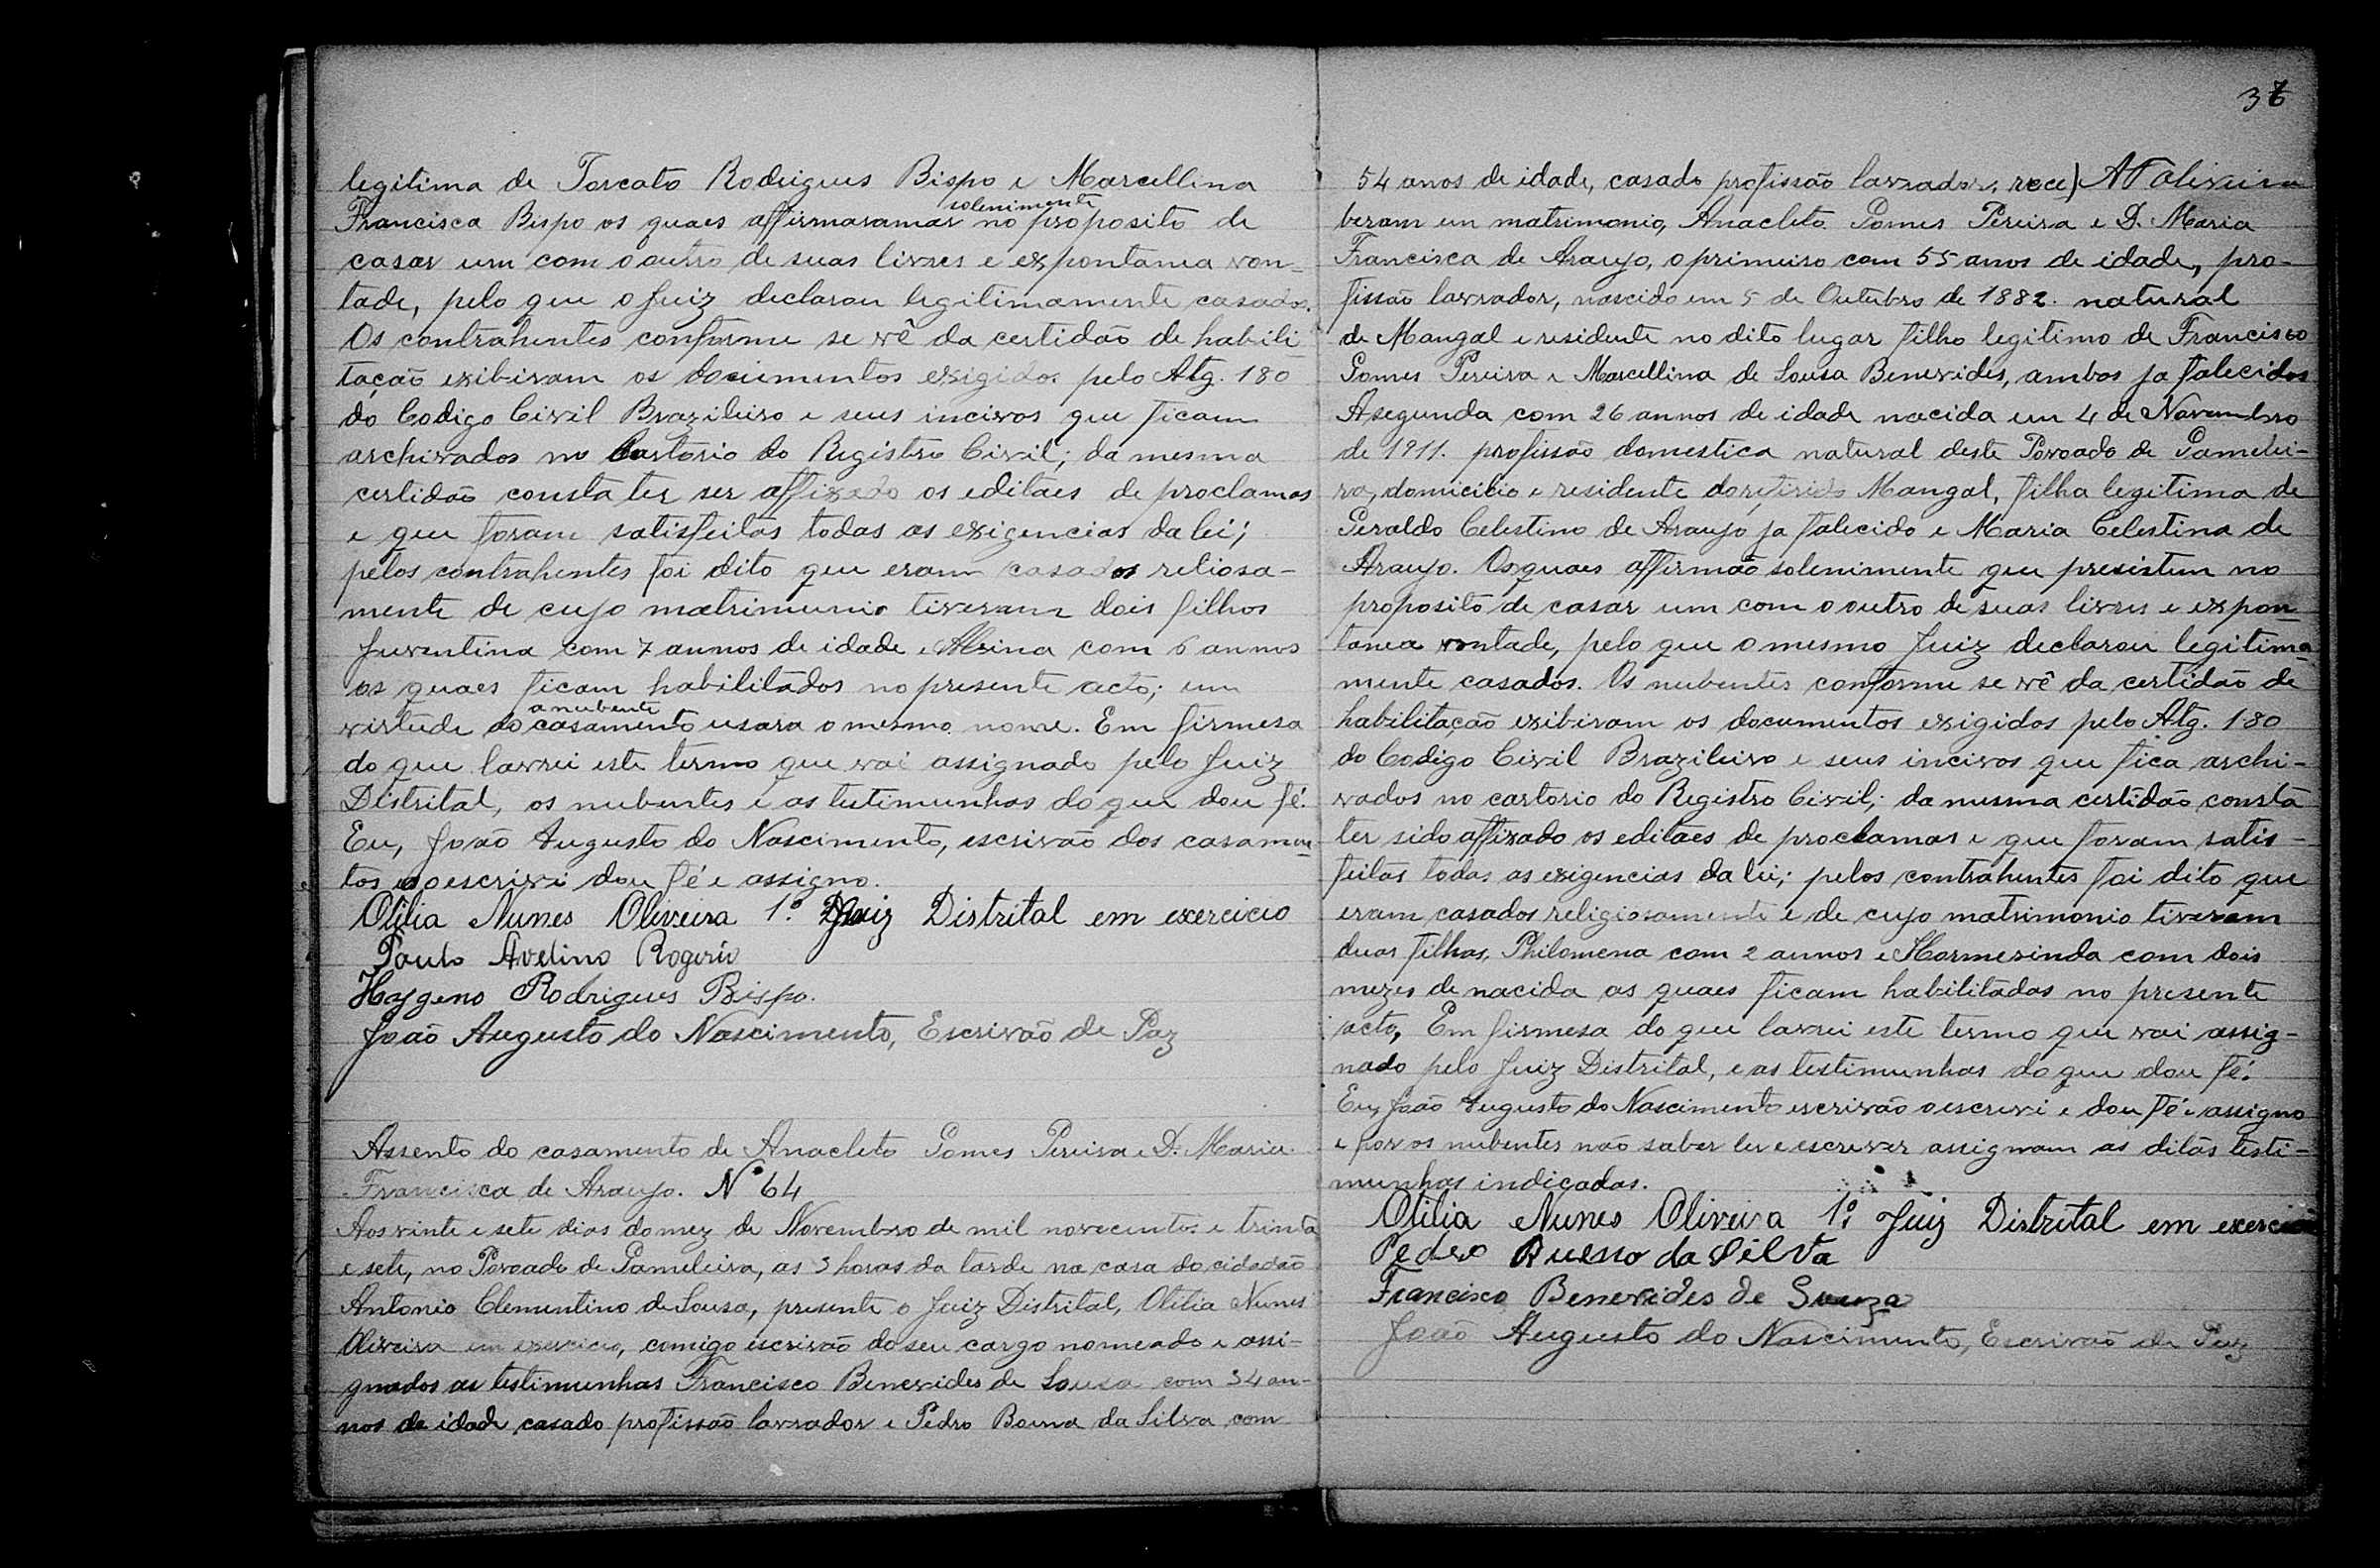 legitima de Torcato Rodrigues Bispo e Marcellina
Francisca Bispo os quaes affirmaramar solenimente no proposito de
casar um com o outro de suas livres e expontania von-
tade, pelo que o Juiz declarou legitimamente casados.
Os contrahentes conforme se vê da certidão de habili-
tação exibiram os documentos exigidos pelo Atg. 180
do Codigo Civil Brazileiro e seus incivos que ficam
archivados no Cartorio do Registro Civil; da mesma
certidão consta ter ser affixado os editaes de proclamas
e que foram satisfeitas todas as exigencias da lei;
pelos contrahentes foi dito que eram casados reliosa-
mente de cujo matrimunio tiveram dois filhos
Juventina com 7 annos de idade e Alsina com 6 annos
os quaes ficam habilitados no presente acto; em
virtude do casamento a nubente usara o mesmo nome. Em firmesa
do que lavrei este termo que vai assignado pelo Juiz
Distrital, os nubentes e as testimunhas do que dou fé.
Eu, João Augusto do Nascimento, escrivão dos casamen-
tos o escrivi dou fé e assigno.
Otilia Nunes Oliveira 1º Juiz Distrital em exercicio
Paulo Avelino Rogerio
Haygeno Rodrigues Bispo.
João Augusto do Nascimento, Escrivão de Paz
Assento do casamento de Anacleto Gomes Pereira e D. Maria
Francisca de Araujo. Nº 64
Aos vinte e sete dias do mez de Novembro de mil novecentos e trinta
e sete, no Povoado de Gameleira, as 3 horas da tarde na casa do cidadão
Antonio Clementino de Sousa, presente o Juiz Distrital, Otilia Nunes
Oliveira em exercicio, comigo escrivão do seu cargo nomeado e assi-
gnados as testimunhas Francisco Benevides de Sousa com 34 an-
nos de idade casado profissão lavrador e Pedro da Silva com
37
54 anos de idade, casado profissão lavrador, rece) A N Oliveira
beram em matrimonio, Anacleto Gomes Pereira e D. Maria
Francisca de Araujo, o primeiro com 55 anos de idade, pro-
fissão lavrador, nascido em 5 de Outubro de 1882. natural
de Mangal e residente no dito lugar filho legitimo de Francisco
Gomes Pereira e Marcellina de Sousa Benevides, ambos ja falecidos
A segunda com 26 annos de idade nacida em 4 de Novembro
de 1911. profissão domestica natural deste Povoado de Gamelei-
ra, domicicio e residente do referido Mangal, filha legitima de
Geraldo Celestino de Araujo, ja falecido e Maria Celestina de
Araujo. Os quaes affirmão solenimente que presistem no
proposito de casar um com o outro de suas livres e expon-
tanea vontade, pelo que o mesmo Juiz declarou legitima-
mente casados. Os nubentes conforme se vê da certidão de
habilitação exibiram os documentos exigidos pelo Atg. 180
do Codigo Civil Brazileiro e seus incivos que fica archi-
vados no cartorio do Registro Civil; da mesma certidão consta
ter sido affixado os editaes de proclamas e que foram satis-
feitas todas as exigencias da lei; pelos contrahentes foi dito que
eram casados religiosamente e de cujo matrimonio tiveram
duas filhas, Philomena com 2 annos e Hormesinda com dois
mezes de nacida as quaes ficam habilitadas no presente
acto, Em firmesa do que lavrei este termo que vai assig-
nado pelo Juiz Distrital, e as testimunhas do que dou fé.
Eu, João Augusto do Nascimento escrivão o escrevi e dou fé e assigno
e por os nubentes não saber ler e escrever assignam as ditas testi-
munhas indicadas.
Otilia Nunes Oliveira 1º Juiz Distrital em exercicio
Pedro Bueno da Silva
Francisco Benevides de Souza
João Augusto do Nascimento, Escrivão de Paz